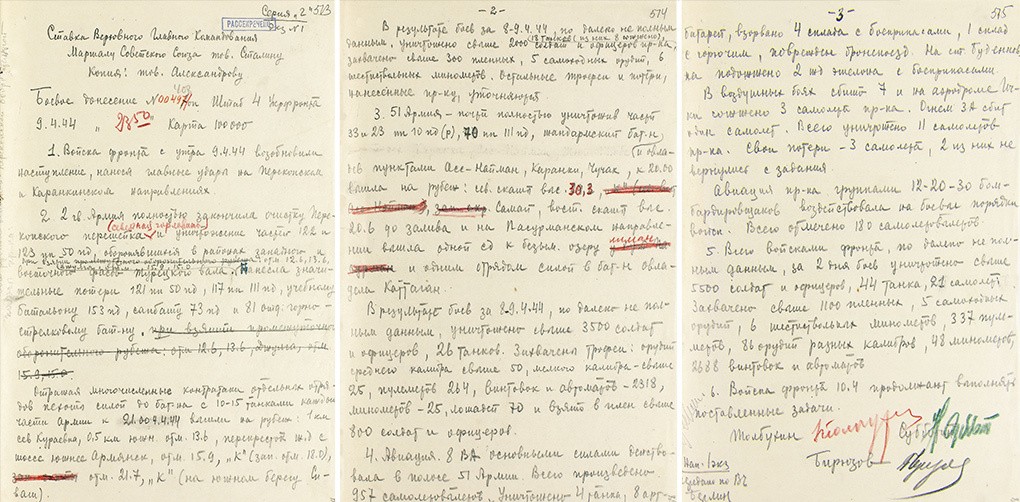 Серия "2" 523
РАССЕКРЕЧЕНО
Экз. №1
Ставка Верховного Главного Командования
Маршалу Советского Союза тов. Сталину
Копия: тов. Александрову
Боевое донесение № 00497/оп Штаб 4 Укрфронта
9.4.44 " 2350 " Карта 100000
1. Войска фронта с утра 9.4.44 возобновили
наступление, нанося главные удары на Перекопском
и Каранкинском направлениях.
2. 2 гв. Армия полностью закончила очистку Пере-
копского перешейка и уничтожение частей 122 и
123 пп 50 пд, оборонявшихся в районах западного
восточного фаса Турецкого вала. Нанесла значи-
тельные потери 121 пп 50 пд, 117 пп 111 пд, учебному
батальону 153 пд, сапбату 73 пд и 81 отд. горно-
стрелковому бат-ну, при взятии промежуточного
оборонительного рубежа: отм. 12.6, 13.6, Джулга, отм.
15.9, 15.0.
Отражая многочисленные контратаки отдельных отря-
дов пехоты силой до бат-на с 10-15 танками каждый
части Армии к 21.00 9.4.44 вышли на рубеж: 1 км
сев. Кураевка, 0,5 км южн. отм. 13.6, перекресток ж.д. с
шоссе южнее Армянск, отм. 15.9, "К" (зап. отм. 18.0),
отм. 21.7, "К" (на южном берегу Си-
ваш).
- 2 -
574
В результате боев за 8-9.4.44 по далеко не полным
данным, уничтожено свыше 2000 солдат и офицеров пр-ка,
захвачено свыше 300 пленных, 5 самоходных орудий, 6
шестиствольных минометов, остальные трофеи и потери,
нанесенные пр-ку, уточняются.
3. 51 Армия - почти полностью уничтожив части
33 и 23 пп 10 пд (р), 70 пп 111 пд, жандармский бат-н,
и овла-
дев пунктами Асс-Найман, Каранки, Чучак, к 20.00
вышла на рубеж: сев. скаты выс. 30,3,
Самай, вост. скаты выс.
20.6 до залива и на Пасурманском направле-
нии вышла одной сд к безым. озеру
и одним отрядом силой в бат-н овла-
дела Каттаган.
В результате боев за 8-9.4.44, по далеко не пол-
ным данным, уничтожено свыше 3500 солдат
и офицеров, 26 танков. Захвачены трофеи: орудий
среднего калибра свыше 50, мелкого калибра - свыше
25, пулеметов 264, винтовок и автоматов - 2318,
минометов - 25, лошадей 70 и взято в плен свыше
800 солдат и офицеров.
4. Авиация. 8 ВА основными силами действо-
вала в полосе 51 Армии. Всего произведено
957 самолетовылетов. Уничтожено 4 танка, 8 арт-
- 3 -
575
батарей, взорвано 4 склада с боеприпасами, 1 склад
с горючим, поврежден бронепоезд. На ст. Буденнев-
ка подожжено 2 жд эшелона с боеприпасами.
В воздушных боях сбит 7 и на аэродроме Ич-
ки сожжено 3 самолета пр-ка. Огнем ЗА сбит
один самолет. Всего уничтожено 11 самолетов
пр-ка. Свои потери - 3 самолета, 2 из них не
вернулись с задания
Авиация пр-ка группами 12-20-30 бом-
бардировщиков воздействовала на боевые порядки
войск. Всего отмечено 180 самолетовылетов.
5. Всего войсками фронта, по далеко не пол-
ным данным, за 2 дня боев уничтожено свыше
5500 солдат и офицеров, 44 танка, 21 самолет.
Захвачено свыше 1100 пленных, 5 самоходных
орудий, 6 шестиствольных минометов, 337 пуле-
метов, 86 орудий разных калибров, 48 минометов,
2688 винтовок и автоматов
6. Войска фронта 10.4 продолжают выполнять
поставленные задачи.
Толбухин
Субботин
Бирюзов